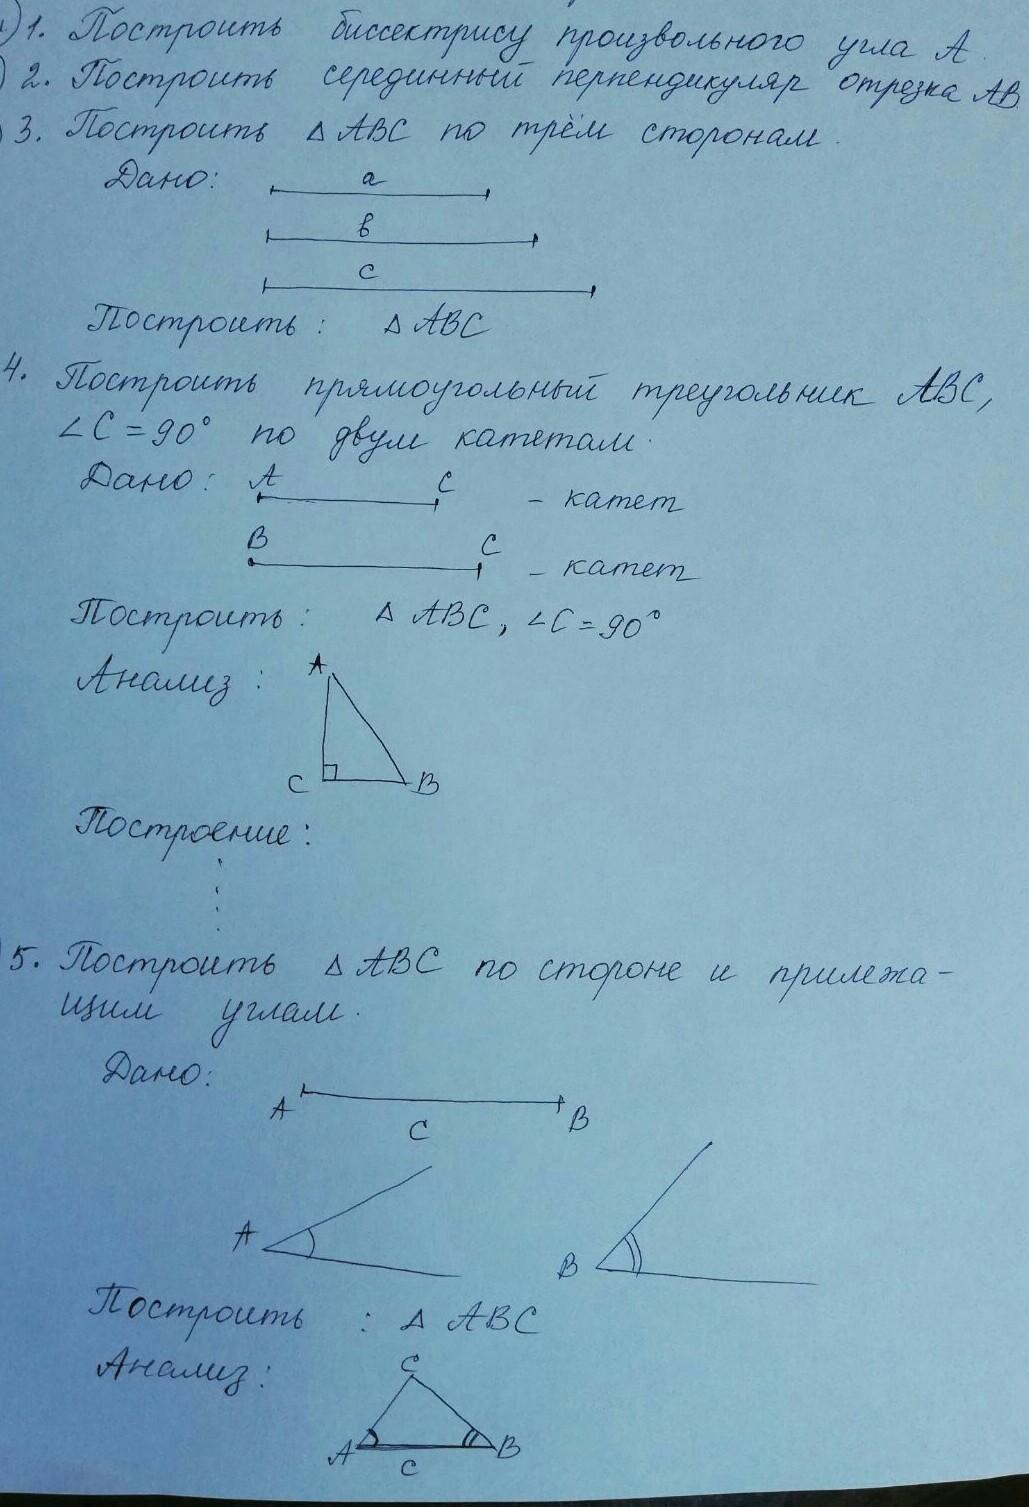 1. Построить биссектрису произвольного угла A.
2. Построить серединный перпендикуляр отрезка AB
3. Построить △ ABC по трём сторонам.
Дано: a
в
c
Построить: △ ABC
4. Построить прямоугольный треугольник ABC,
∠C = 90° по двум катетам.
Дано: A C - катет
B C - катет
Построить: △ ABC, ∠C = 90°
Анализ: A
C B
Построение:
5. Построить △ ABC по стороне и прилежа-
щим углам.
Дано:
A B
C
A B
Построить : △ ABC
Анализ:
C
A B
C